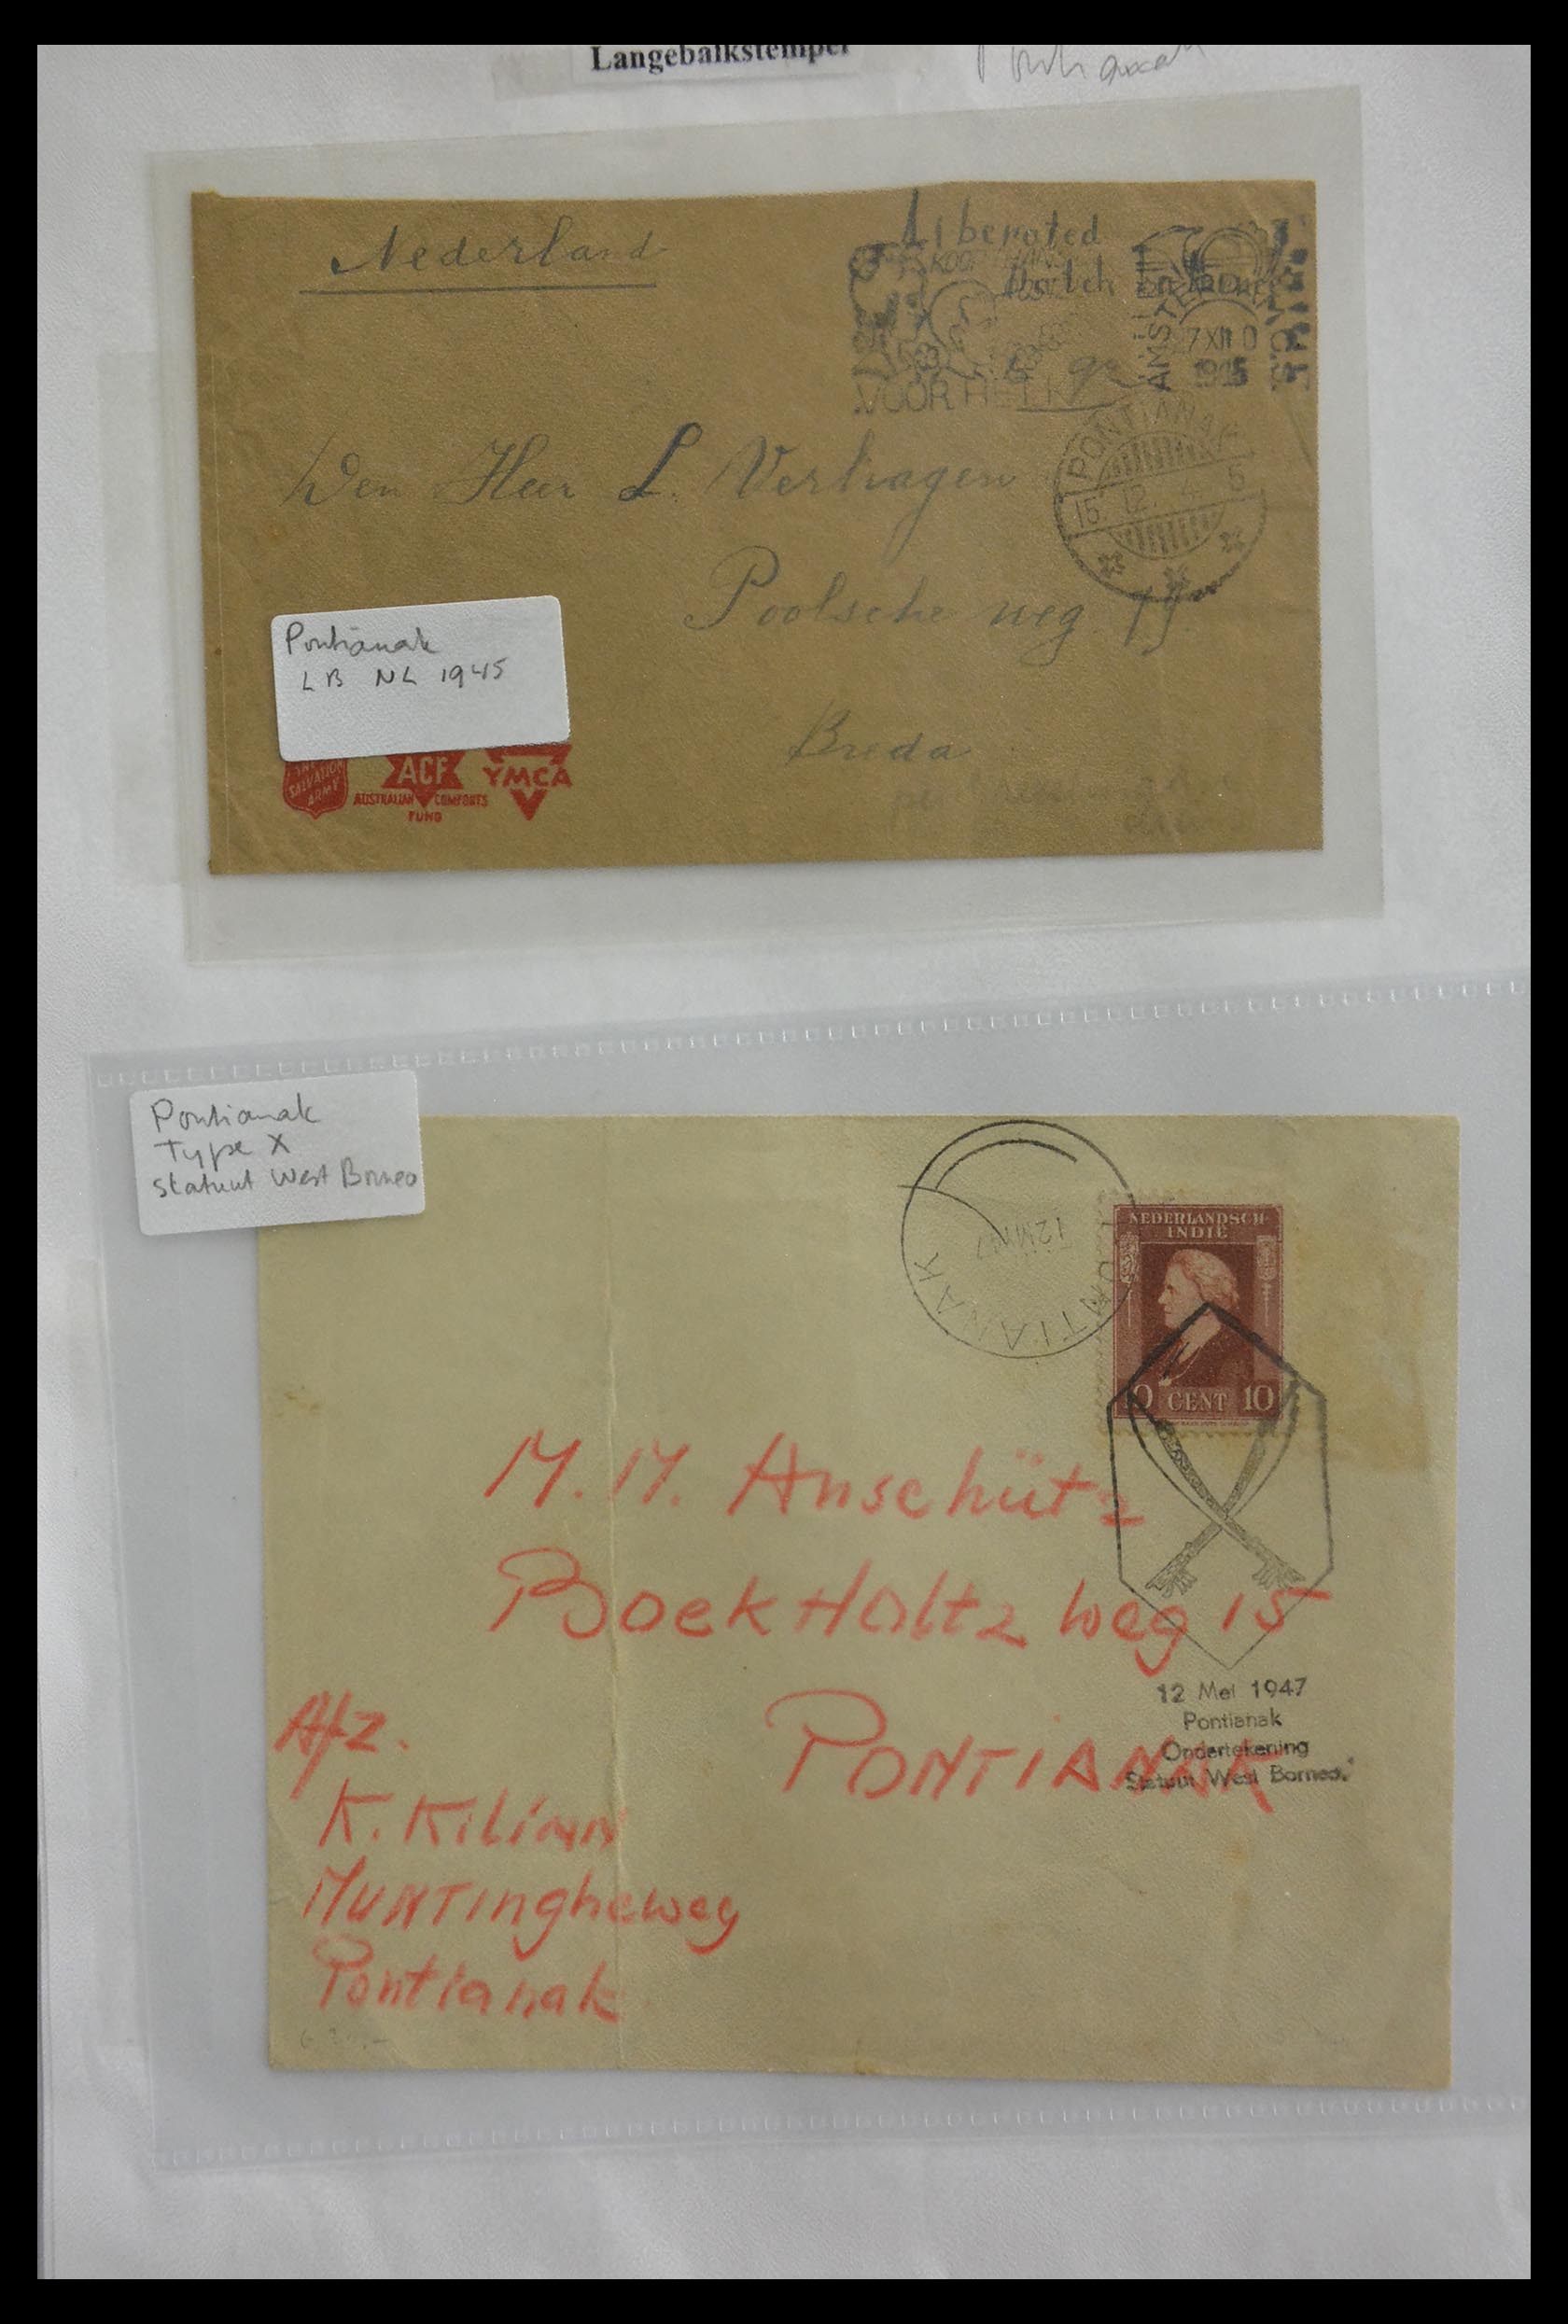 Langebalkstempel
Pontianak
Nederland
Liberated
Dutch
KOOP
VOOR HET KIND
AMSTERDAM
7 XII
1945
PONTIANAK
15. 12. 4 5
Den Heer L. Verhagen
Poolsche weg
Breda
Pontianak
LB NL 1945
THE
SALVATION
ARMY
ACF
AUSTRALIAN COMFORTS
FUND
YMCA
Pontianak
Type X
Statuut West Borneo
PONTIANAK
12 MEI 47
NEDERLANDSCH-
INDIË
10 CENT 10
M. M. Anschütz
BoekHoltz weg 15
PONTIANAK
12 Mei 1947
Pontianak
Ondertekening
Statuut West Borneo.
Afz.
K. Kilian
MUNTingheweg
Pontianak